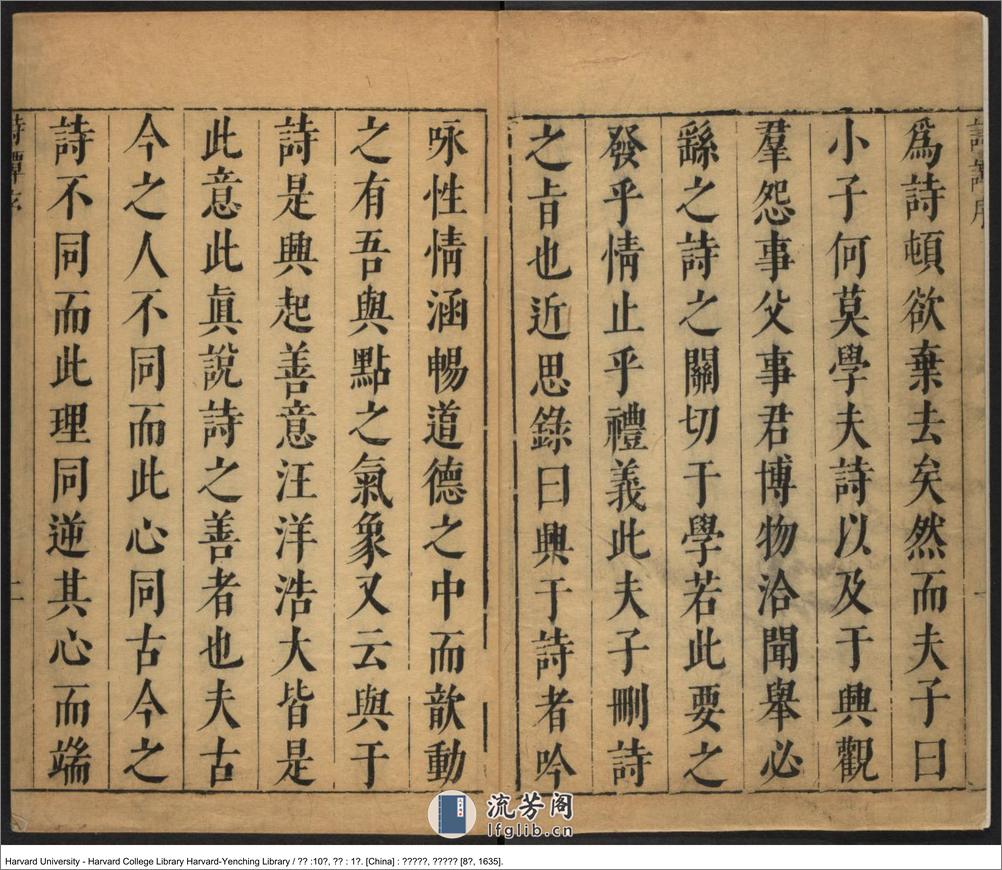 爲詩頓欲棄去矣然而夫子曰
小子何莫學夫詩以及于興觀
羣怨事父事君博物洽聞舉必
繇之詩之關切于學若此要之
發乎情止乎禮義此夫子刪詩
之旨也近思錄曰興于詩者吟
咏性情涵暢道德之中而歆動
之有吾與點之氣象又云興于
詩是興起善意汪洋浩大皆是
此意此眞說詩之善者也夫古
今之人不同而此心同古今之
詩不同而此理同逆其心而端
詩譚序
二
流芳阁
lfglib.cn
Harvard University - Harvard College Library Harvard-Yenching Library / ?? :10?, ?? : 1?. [China] : ?????, ????? [8?, 1635].